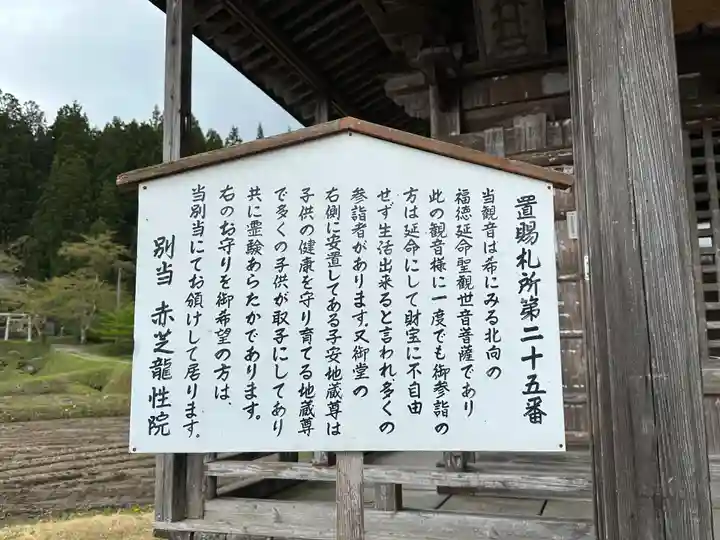 置賜札所第二十五番
当観音は希にみる北向の
福徳延命聖観世音菩薩であり
此の観音様に一度でも御参詣の
方は延命にして財宝に不自由
せず生活出来ると言われ、多くの
参詣者があります。又御堂の
右側に安置してある子安地蔵尊は
子供の健康を守り育てる地蔵尊
で多くの子供が取子にしてあり
共に霊験あらたかであります。
右のお守りを御希望の方は、
当別当にてお頒けして居ります。
別当 赤芝龍性院